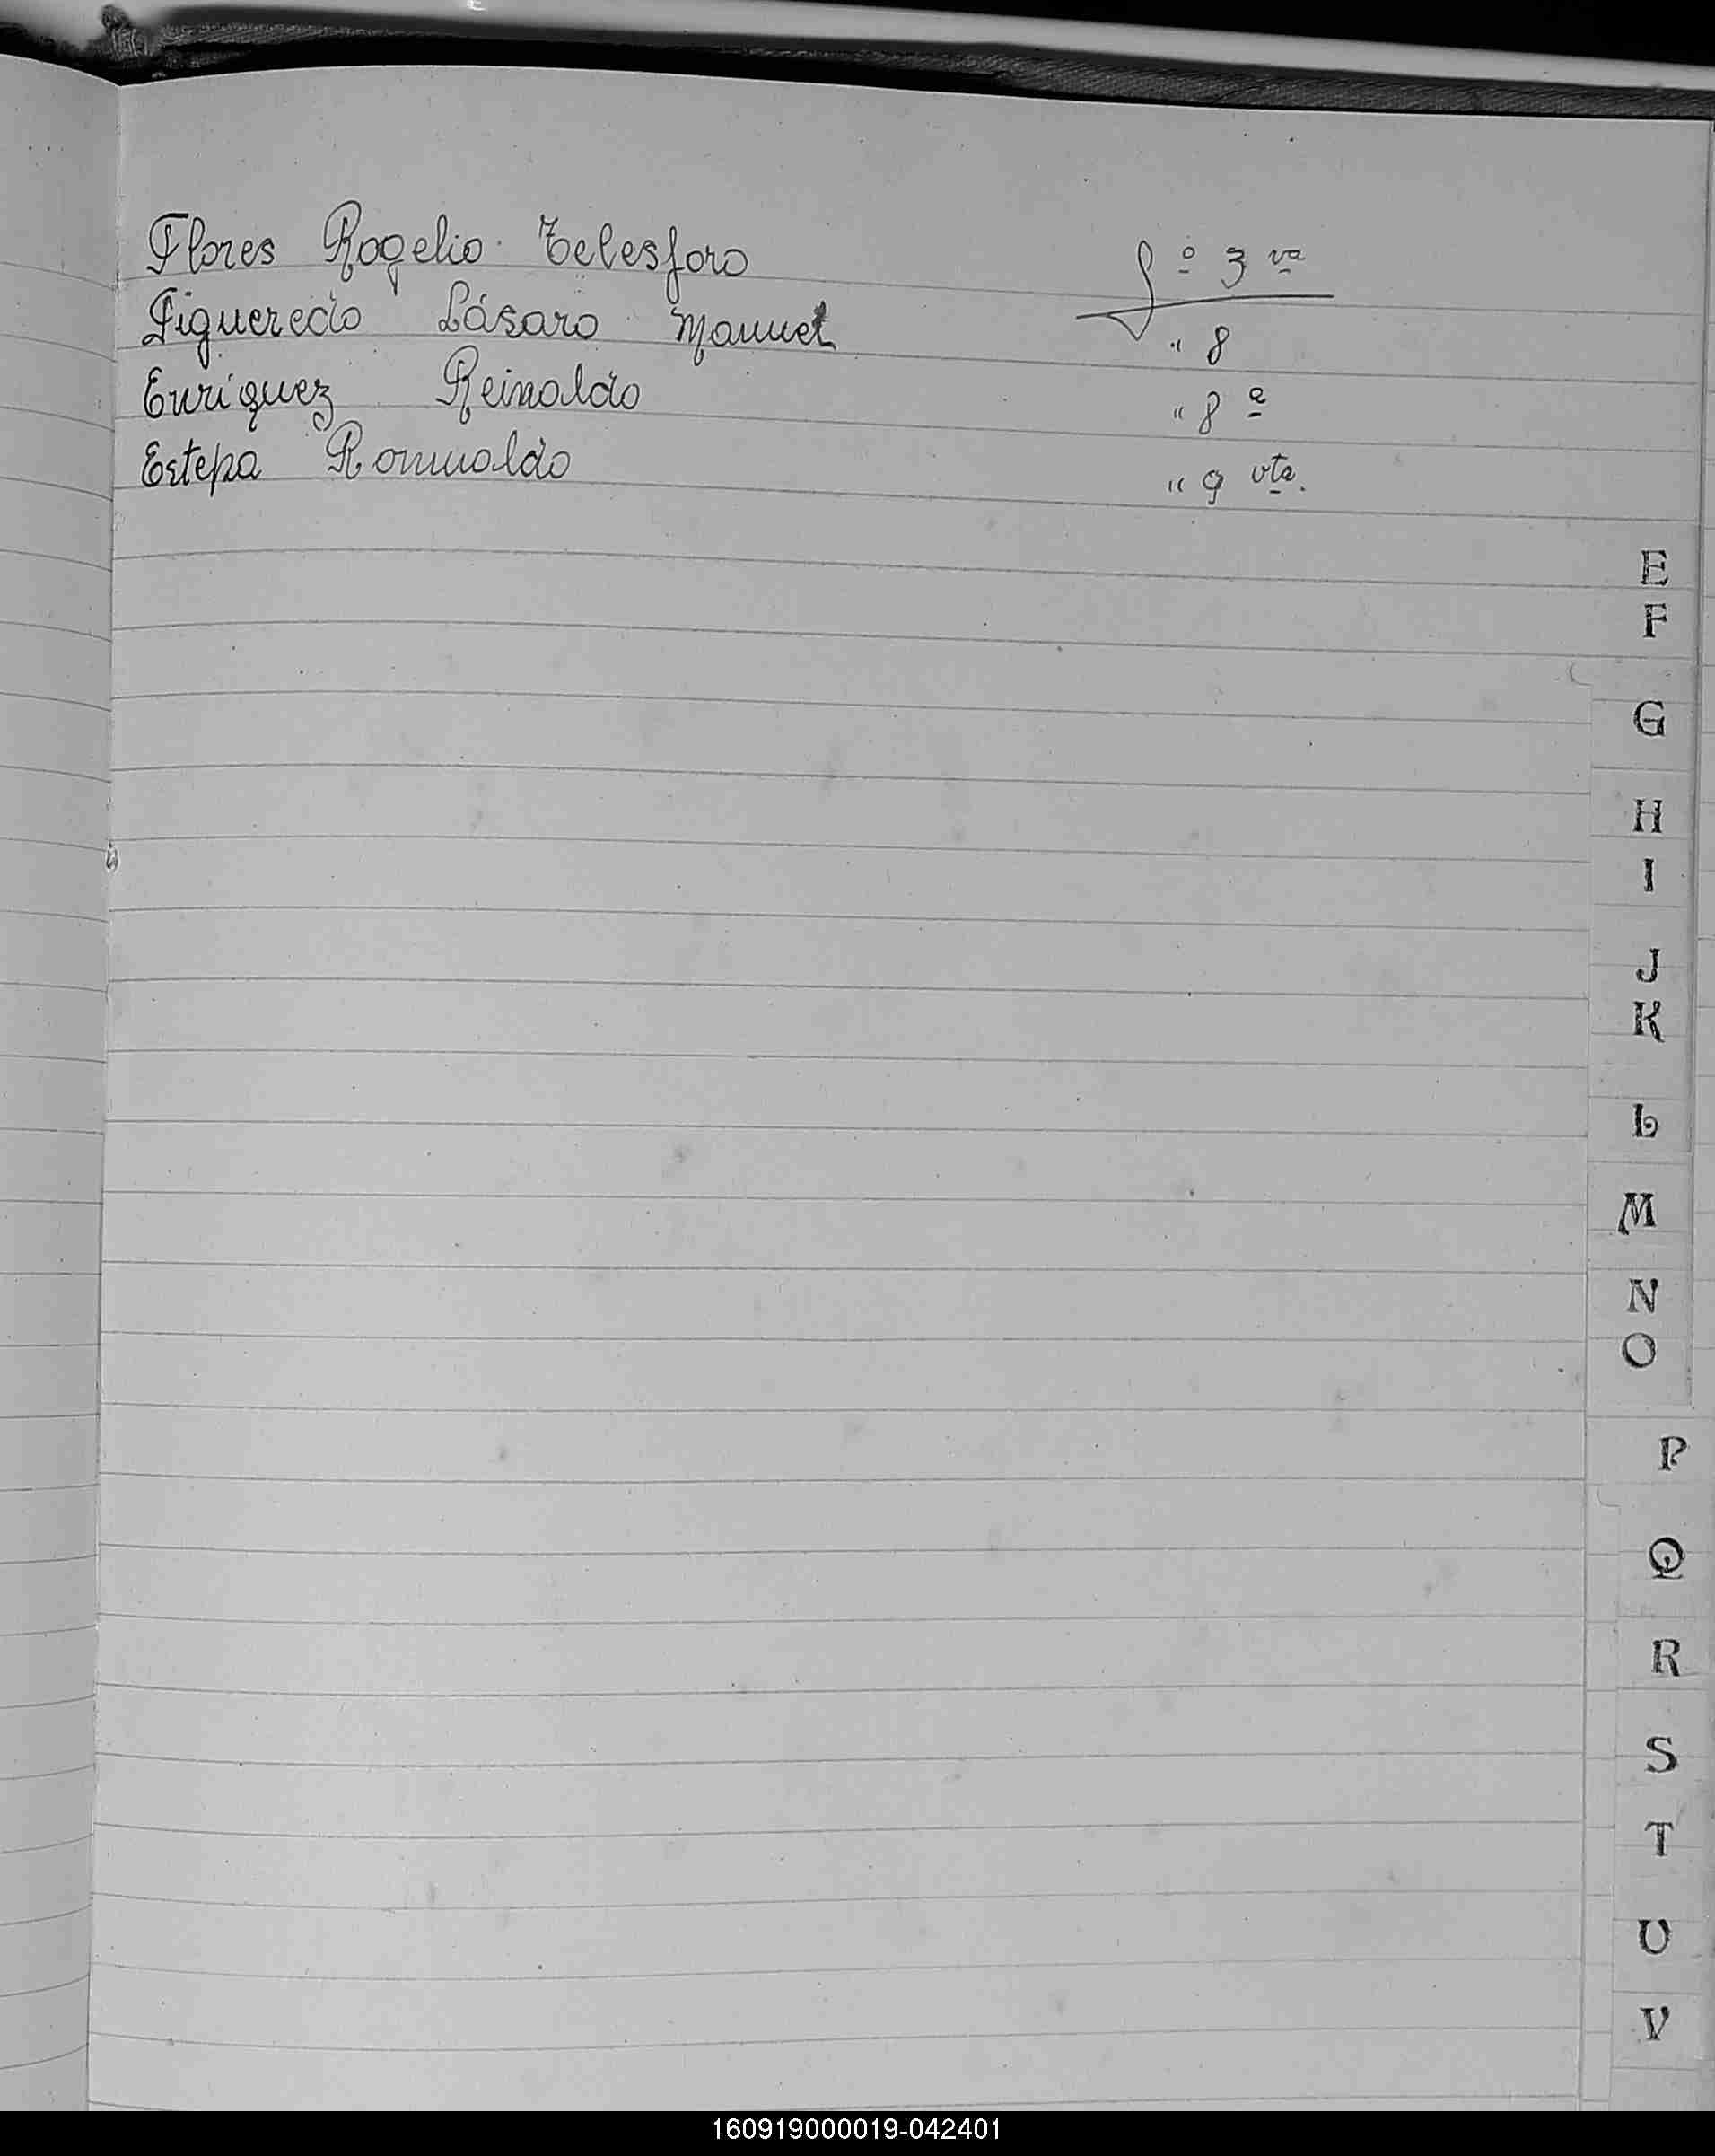 Flores Rogelio Telesforo fº 3 va
Figueredo Lásaro Manuel " 8
Enriquez Reinaldo " 8 a
Estepa Romualdo " 9 vta.
E
F
G
H
I
J
K
L
M
N
O
P
Q
R
S
T
U
V
160919000019-042401